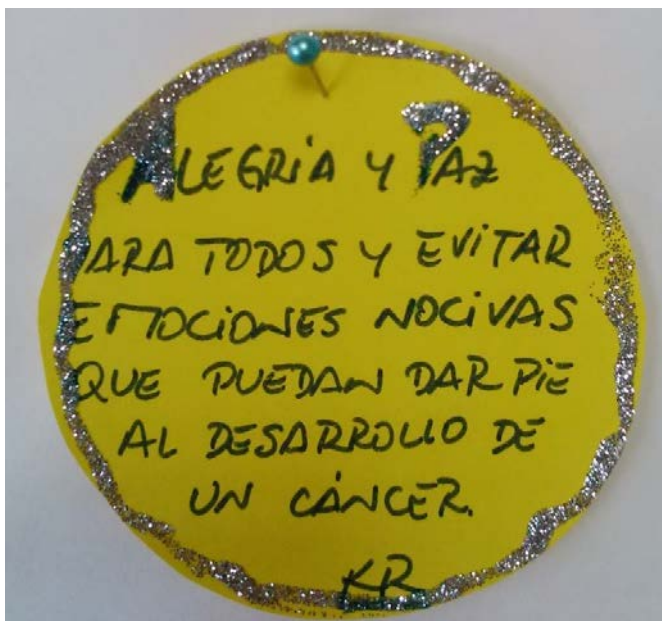 ALEGRÍA Y PAZ
PARA TODOS Y EVITAR
EMOCIONES NOCIVAS
QUE PUEDAN DAR PIE
AL DESARROLLO DE
UN CÁNCER.
KR